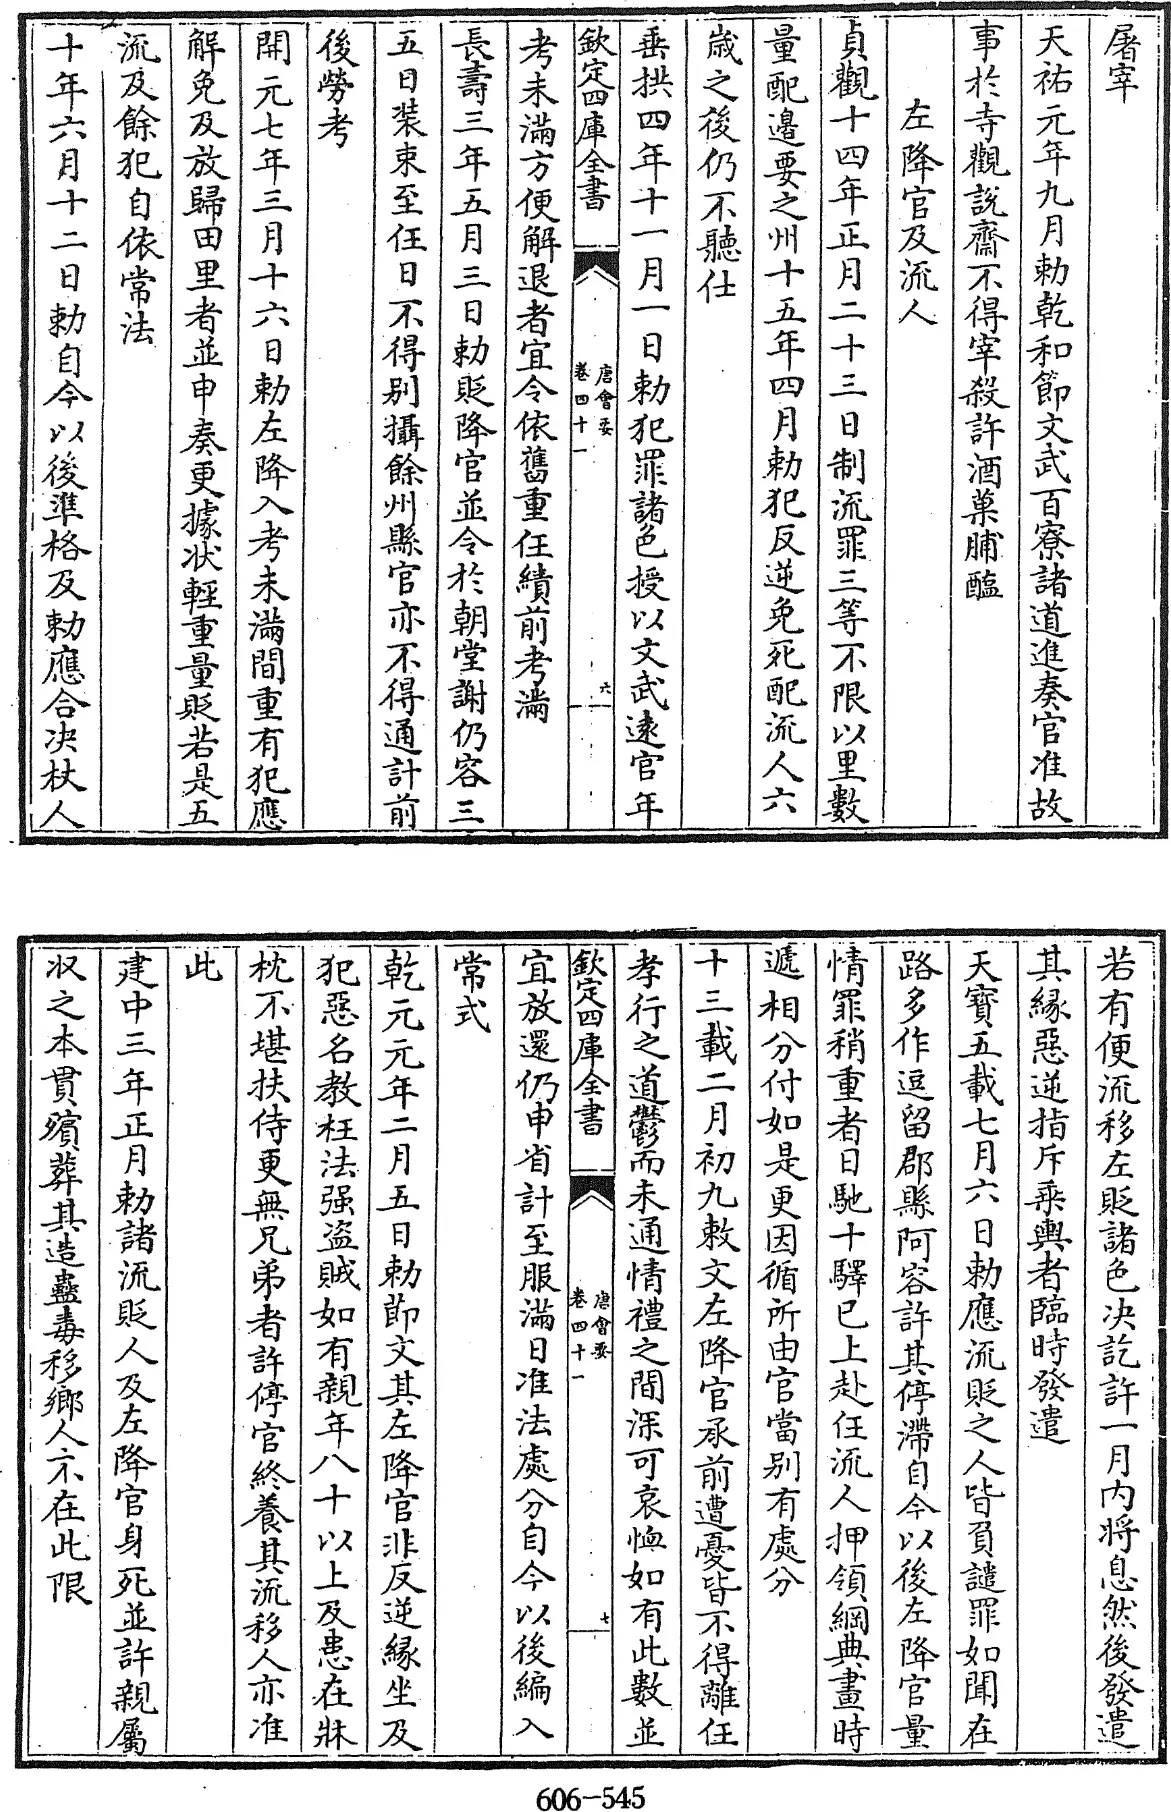 屠宰
天祐元年九月勅乾和節文武百寮諸道進奏官准故
事於寺觀設齋不得宰殺許酒菓脯醢
左降官及流人
貞觀十四年正月二十三日制流罪三等不限以里數
量配邊要之州十五年四月勅犯反逆免死配流人六
歲之後仍不聽仕
垂拱四年十一月一日勅犯罪諸色授以文武逺官年
欽定四庫全書
唐會要
卷四十一
六
考未滿方便解退者宜令依舊重任續前考滿
長壽三年五月三日勅貶降官並令於朝堂謝仍容三
五日裝束至任日不得别攝餘州縣官亦不得通計前
後勞考
開元七年三月十六日勅左降入考未滿間重有犯應
解免及放歸田里者並申奏更據狀輕重量貶若是五
流及餘犯自依常法
十年六月十二日勅自今以後準格及勅應合决杖人
若有便流移左貶諸色决訖許一月内將息然後發遣
其縁惡逆指斥乘輿者臨時發遣
天寶五載七月六日勅應流貶之人皆負譴罪如聞在
路多作逗留郡縣阿容許其停滯自今以後左降官量
情罪稍重者日馳十驛已上赴任流人押領綱典畫時
遞相分付如是更因循所由官當别有處分
十三載二月初九敕文左降官承前遭憂皆不得離任
孝行之道鬱而未通情禮之間深可哀恤如有此數並
欽定四庫全書
唐會要
卷四十一
七
宜放還仍申省計至服滿日准法處分自今以後編入
常式
乾元元年二月五日勅節文其左降官非反逆縁坐及
犯惡名教枉法强盗賊如有親年八十以上及患在牀
枕不堪扶侍更無兄弟者許停官終養其流移人亦准
此
建中三年正月勅諸流貶人及左降官身死並許親屬
収之本貫殯葬其造蠱毒移鄉人不在此限
606-545